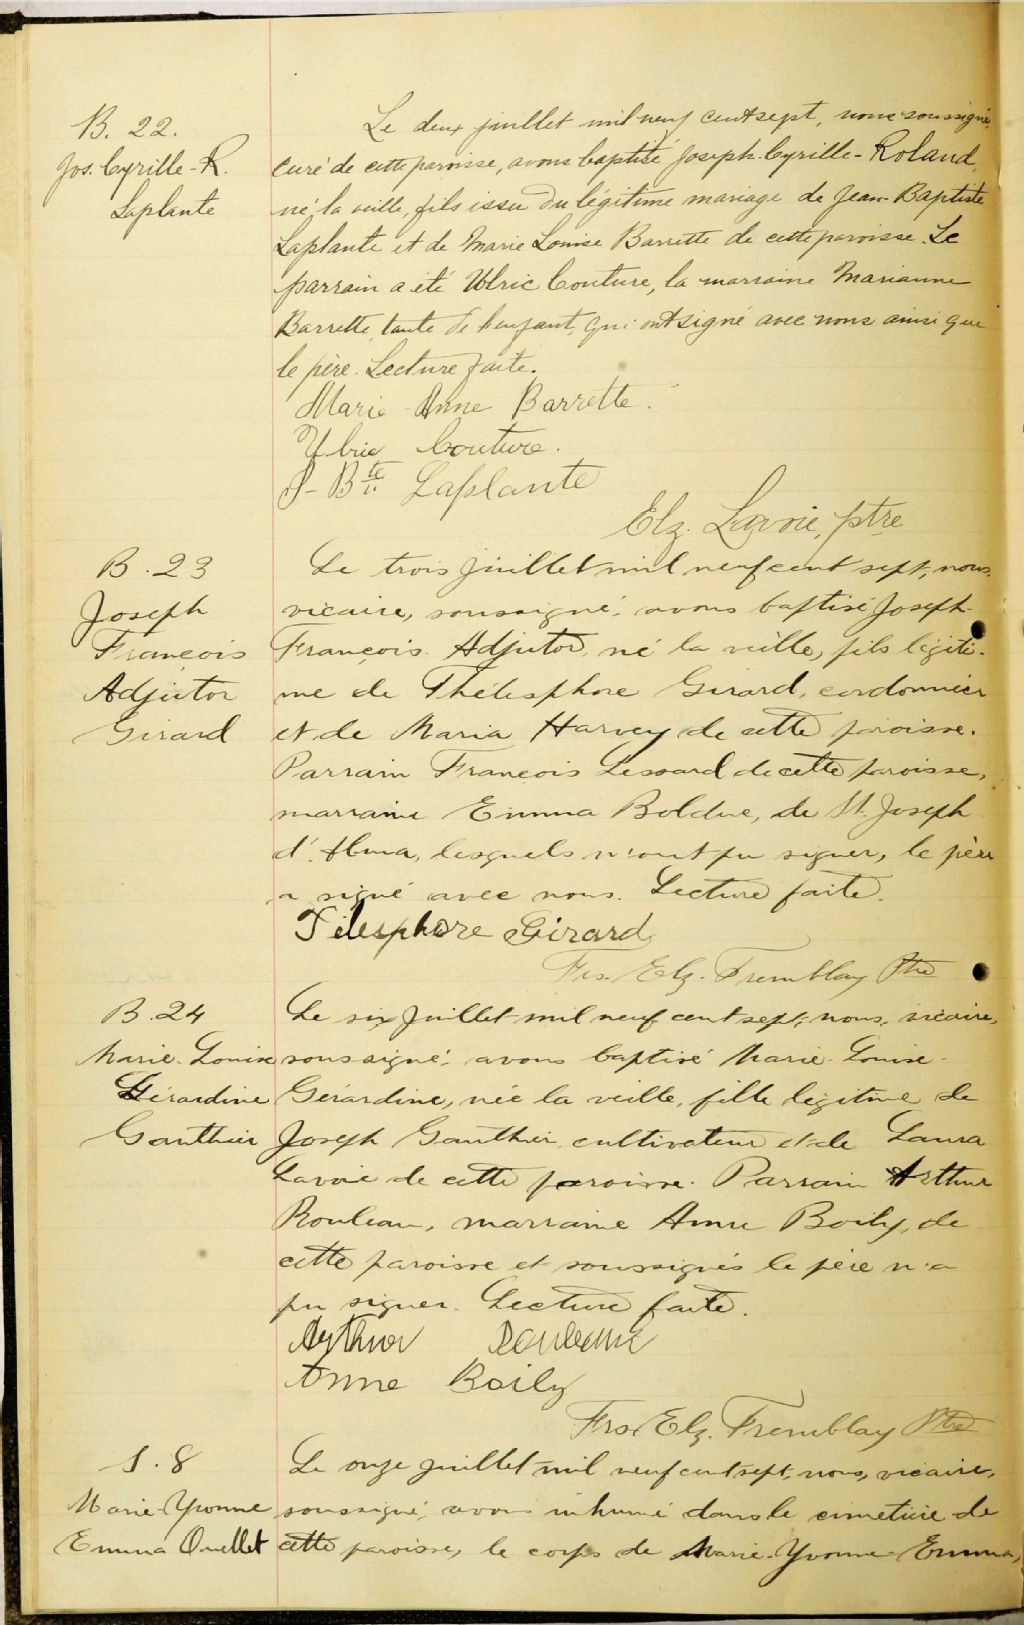 B. 22.
Jos. Cyrille-R.
Laplante
Le deux juillet mil neuf cent sept, nous soussigné,
curé de cette paroisse, avons baptisé Joseph-Cyrille-Roland,
né la veille, fils issu du légitime mariage de Jean-Baptiste
Laplante et de Marie Louise Barrette de cette paroisse. Le
parrain a été Ulric Couture, la marraine Marianne
Barrette, tante de l'enfant, qui ont signé avec nous ainsi que
le père. Lecture faite.
Marie-Anne Barrette.
Ulric Couture.
J-Bte. Laplante
Elz. Lavoie, ptre
B. 23
Joseph
François
Adjutor
Girard
Le trois juillet mil neuf cent sept, nous,
vicaire, soussigné, avons baptisé Joseph-
François. Adjutor, né la veille, fils légiti-
me de Thélesphore Girard, cordonnier
et de Maria Harvey de cette paroisse.
Parrain François Lessard de cette paroisse,
marraine Emma Bolduc, de St. Joseph
d'Alma, lesquels n'ont pu signer, le père
a signé avec nous. Lecture faite.
Télesphore Girard
Frs. Elz. Tremblay Ptre
B. 24
Marie-Louise
Gérardine
Gauthier
Le six juillet mil neuf cent sept, nous, vicaire,
soussigné, avons baptisé Marie-Louise-
Gérardine, née la veille, fille légitime de
Joseph Gauthier, cultivateur et de Laura
Lavoie de cette paroisse. Parrain Arthur
Rouleau, marraine Anne Boily, de
cette paroisse et soussignés le père n'a
pu signer. Lecture faite.
Arthur Rouleau
Anne Boily
Frs. Elz. Tremblay Ptre
S. 8
Marie-Yvonne
Emma Ouellet
Le onze juillet mil neuf cent sept, nous, vicaire,
soussigné, avons inhumé dans le cimetière de
cette paroisse, le corps de Marie-Yvonne-Emma,